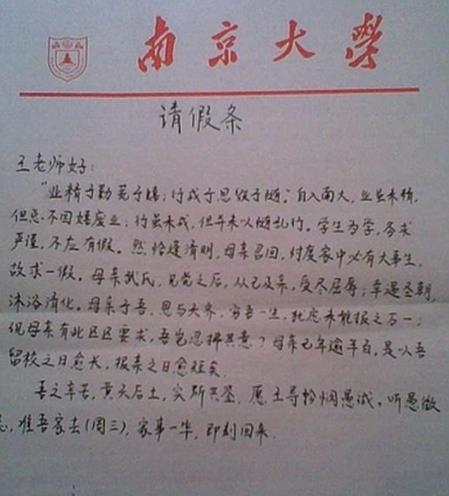 南京大學
请假条
王老师好：
“业精于勤荒于嬉；行成于思毁于随。”自入南大，业虽未精，
但忌不因嬉废业；行虽未成，但年未以随乱行。学生为学，务求
严谨，不应有假。然恰逢清明，母亲召回，忖度家中必有大事生，
故求一假。母亲氏，见背之后，从己及亲，受尽屈辱；幸遇圣朝
沐浴清化。母亲于吾，恩与天齐，穷吾一生，犹恐未能报之万一；
倪母亲有此区区要求，吾岂忍拂其意？母亲已年逾半百，是以吾
留校之日愈长，报亲之日愈短矣
吾之辛苦，黄天后土，实所共鉴，愿王导矜悯愚诚，听愚微
志，准吾家去（周三），家事一毕，即刻回来